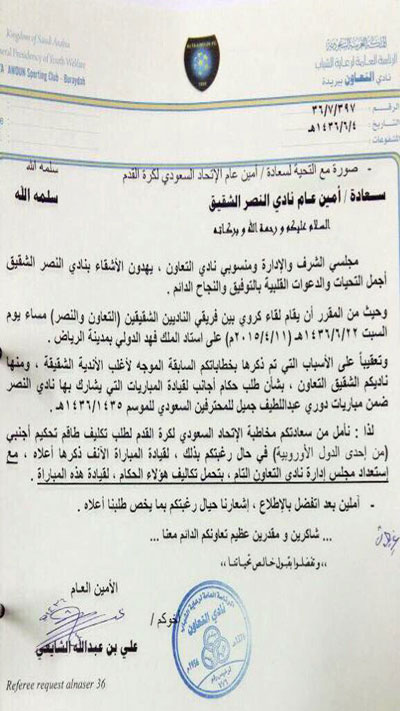 المملكة العربية السعودية
الرئاسة العامة لرعاية الشباب
نادي التعاون ببريدة
Kingdom of Saudi Arabia
General Presidency of Youth Welfare
AL TAAWOUN Sporting Club - Buraydah
الرقم: ٣٦/٧/٣٩٧
التاريخ: ١٤٣٦/٦/٤هـ
- صورة مع التحية لسعادة / أمين عام الإتحاد السعودي لكرة القدم سلمه الله
سعادة / أمين عام نادي النصر الشقيق سلمه الله
السلام عليكم و رحمة الله و بركاته
مجلسي الشرف والإدارة ومنسوبي نادي التعاون ، يهدون الأشقاء بنادي النصر الشقيق
أجمل التحيات والدعوات القلبية بالتوفيق والنجاح الدائم .
وحيث من المقرر أن يقام لقاء كروي بين فريقي الناديين الشقيقين (التعاون والنصر) مساء يوم
السبت ١٤٣٦/٦/٢٢هـ (٢٠١٥/٤/١١م) على استاد الملك فهد الدولي بمدينة الرياض .
وتعقيباً على الأسباب التي تم ذكرها بخطاباتكم السابقة الموجه لأغلب الأندية الشقيقة ، ومنها
ناديكم الشقيق التعاون ، بشأن طلب حكام أجانب لقيادة المباريات التي يشارك بها نادي النصر
ضمن مباريات دوري عبداللطيف جميل للمحترفين السعودي للموسم ١٤٣٦/١٤٣٥هـ .
لذا : نأمل من سعادتكم مخاطبة الإتحاد السعودي لكرة القدم لطلب تكليف طاقم تحكيم أجنبي
(من إحدى الدول الأوروبية) في حال رغبتكم بذلك ، لقيادة المباراة الآنف ذكرها أعلاه ، مع
استعداد مجلس إدارة نادي التعاون التام ، بتحمل تكاليف هؤلاء الحكام ، لقيادة هذه المباراة .
- آملين بعد اتفضل بالإطلاع ، إشعارنا حيال رغبتكم بما يخص طلبنا أعلاه .
... شاكرين و مقدرين عظيم تعاونكم الدائم معنا ...
،، وتفضلوا بقبول خالص تحياتنا ،،
الأمين العام
أخوكم /
علي بن عبدالله الشايعي
الرئاسة العامة لرعاية الشباب
نادي التعاون
Referee request alnaser 36